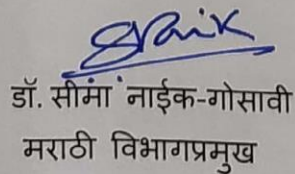 डॉ. सीमा नाईक-गोसावी
मराठी विभागप्रमुख